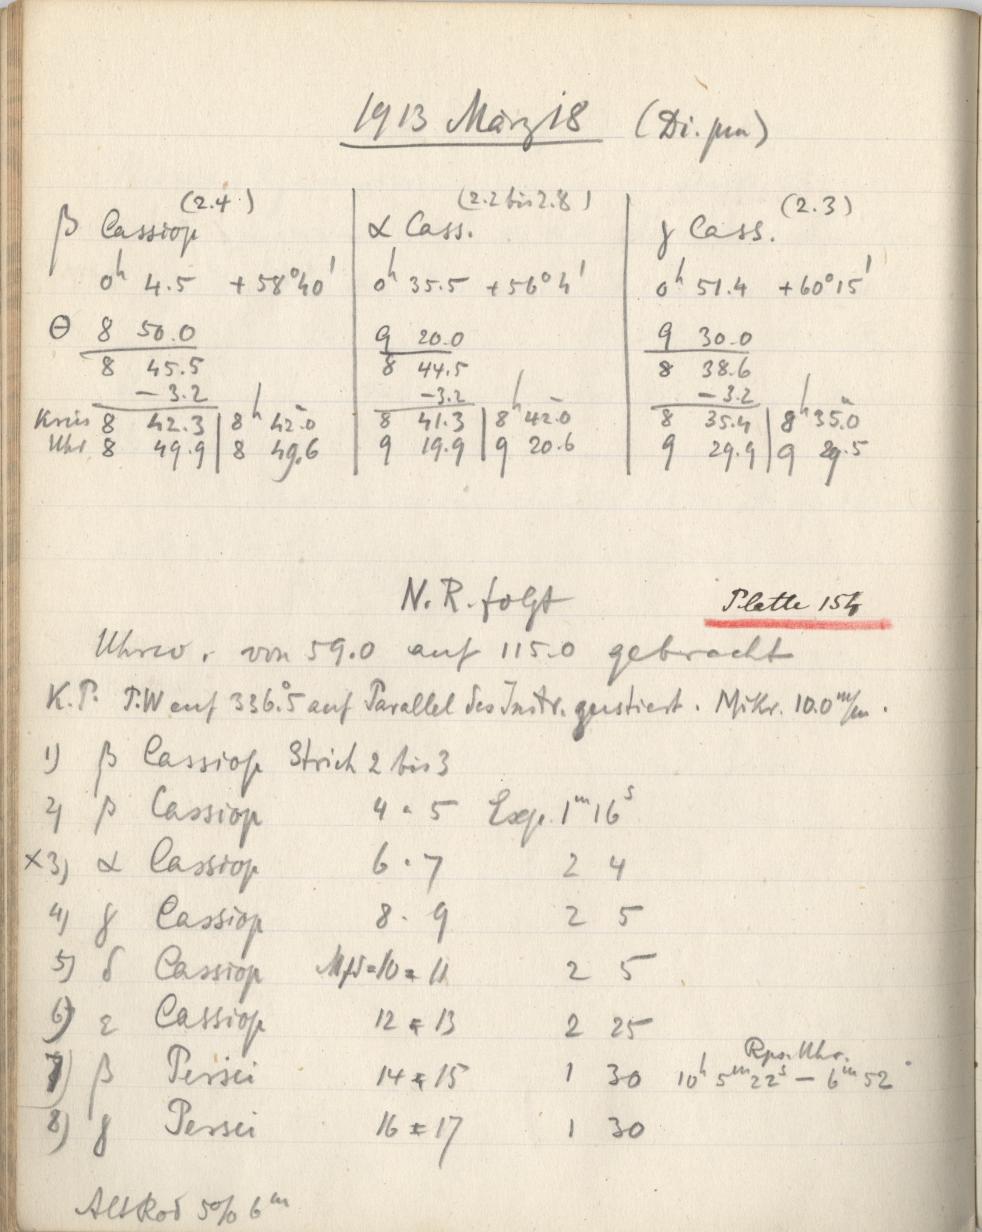 1913 März 18 (Di. pm)
(2.4) (2.2 bis 2.8) (2.3)
β Cassiop α Cass. γ Cass.
0h 4.5 +58°40' 0h 35.5 +56°4' 0h 51.4 +60°15'
Θ 8 50.0 9 20.0 9 30.0
8 45.5 8 44.5 8 38.6
-3.2 -3.2 -3.2
Kreis 8 42.3 8h 42.0 8 41.3 8h 42.0 8 35.4 8h 35.0
Uhr 8 49.9 8 49.6 9 19.9 9 20.6 9 29.9 9 29.5
N.R. folgt Platte 154
Uhrw. von 59.0 auf 115.0 gebracht
K.P. P.W auf 336.°5 auf Parallel des Instr. justiert. Mikr. 10.0 m/m.
1) β Cassiop Strich 2 bis 3
2) β Cassiop 4 - 5 Exp. 1m 16s
×3) α Cassiop 6 - 7 2 4
4) γ Cassiop 8 - 9 2 5
5) δ Cassiop 10 = 11 2 5
6) ε Cassiop 12 = 13 2 25
Uhr.
7) β Persei 14 = 15 1 30 10h 5m 22s — 6m 52
8) γ Persei 16 = 17 1 30
6m